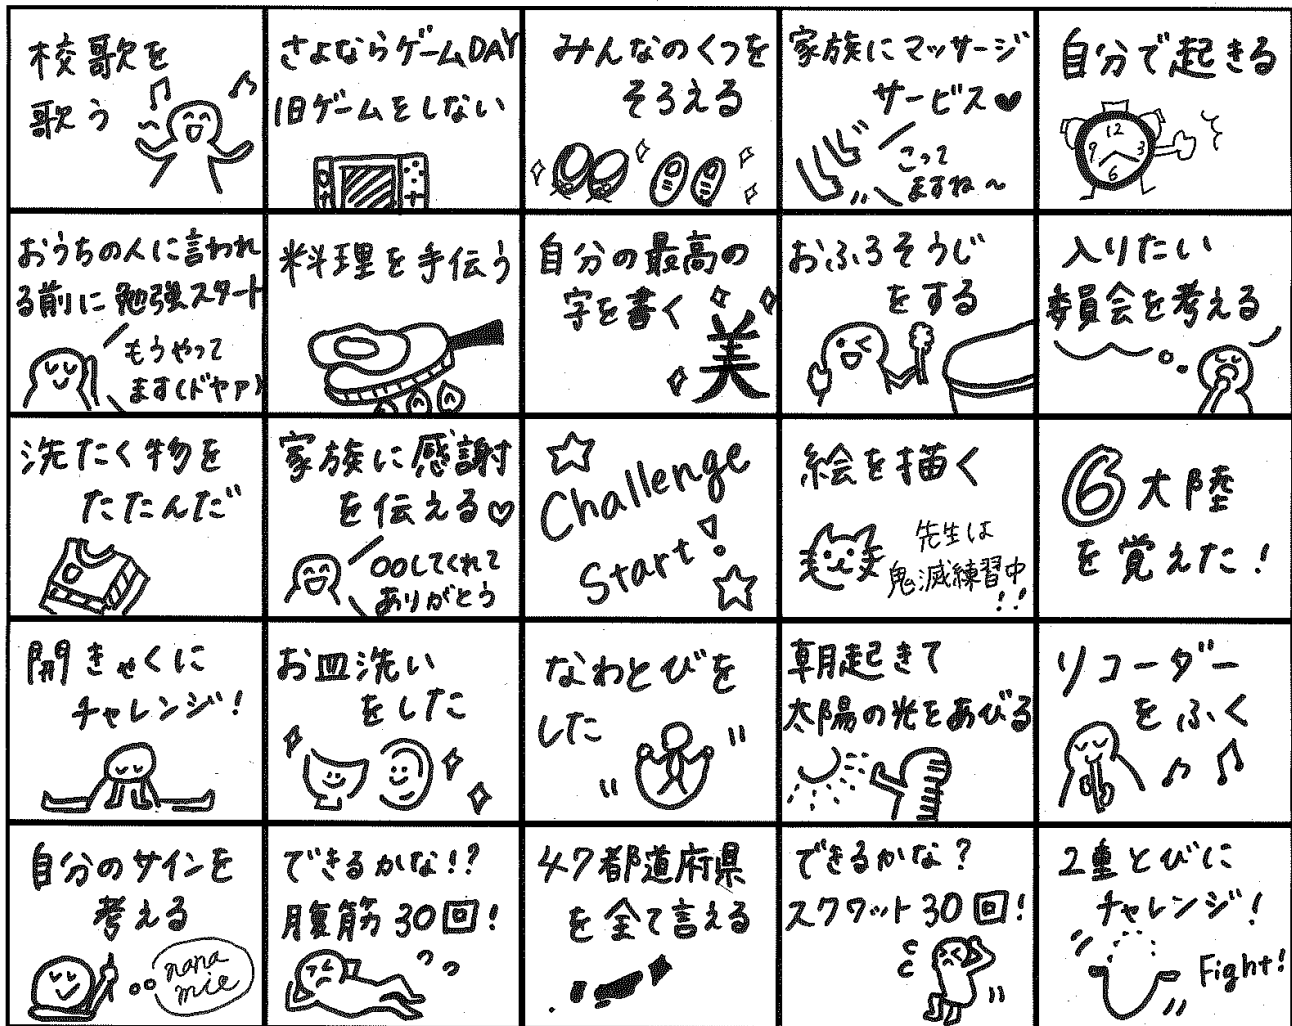 校歌を
歌う
さよならゲームDAY
1日ゲームをしない
みんなのくつを
そろえる
家族にマッサージ
サービス♥
こって
ますね〜
自分で起きる
12
3
6
9
おうちの人に言われ
る前に勉強スタート
もうやって
ます(ドヤァ)
料理を手伝う
自分の最高の
字を書く
美
おふろそうじ
をする
入りたい
委員会を考える
洗たく物を
たたんだ
家族に感謝
を伝える♡
○○してくれて
ありがとう
Challenge
Start!
絵を描く
先生は
鬼滅練習中
!!
6大陸
を覚えた!
開きゃくに
チャレンジ!
お皿洗い
をした
なわとびを
した
朝起きて
太陽の光をあびる
リコーダー
をふく
自分のサインを
考える
nana
mie
できるかな!?
腹筋30回!
47都道府県
を全て言える
できるかな?
スクワット30回!
2重とびに
チャレンジ!
Fight!